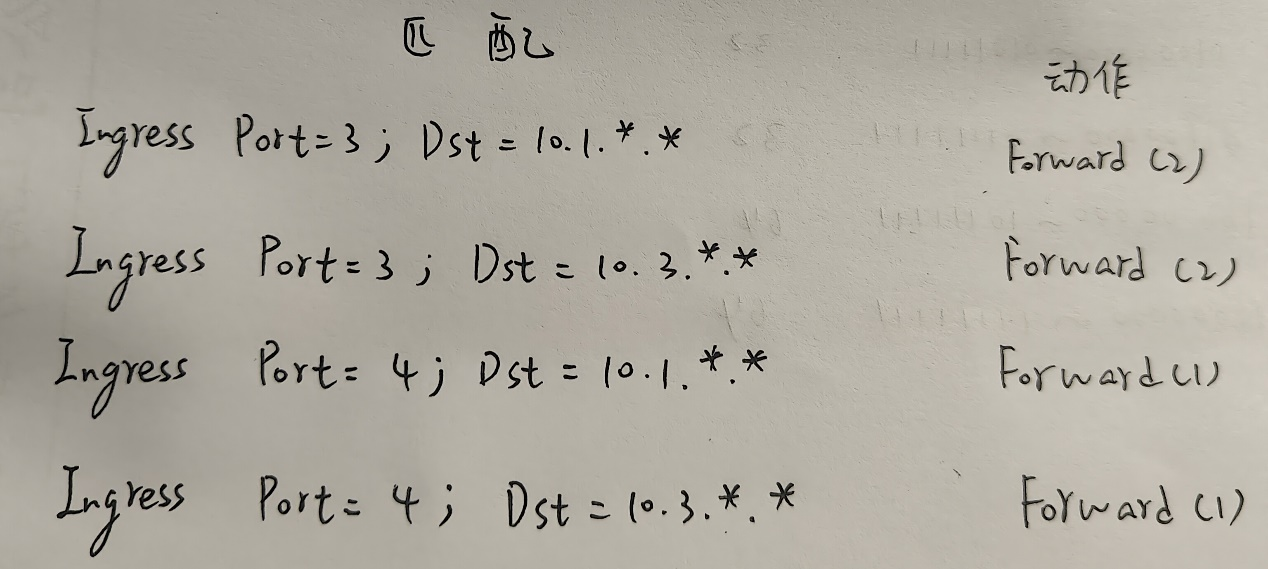 匹配
动作
Ingress Port=3; Dst = 10.1.*.* Forward (2)
Ingress Port=3; Dst = 10.3.*.* Forward (2)
Ingress Port=4; Dst = 10.1.*.* Forward (1)
Ingress Port=4; Dst = 10.3.*.* Forward (1)